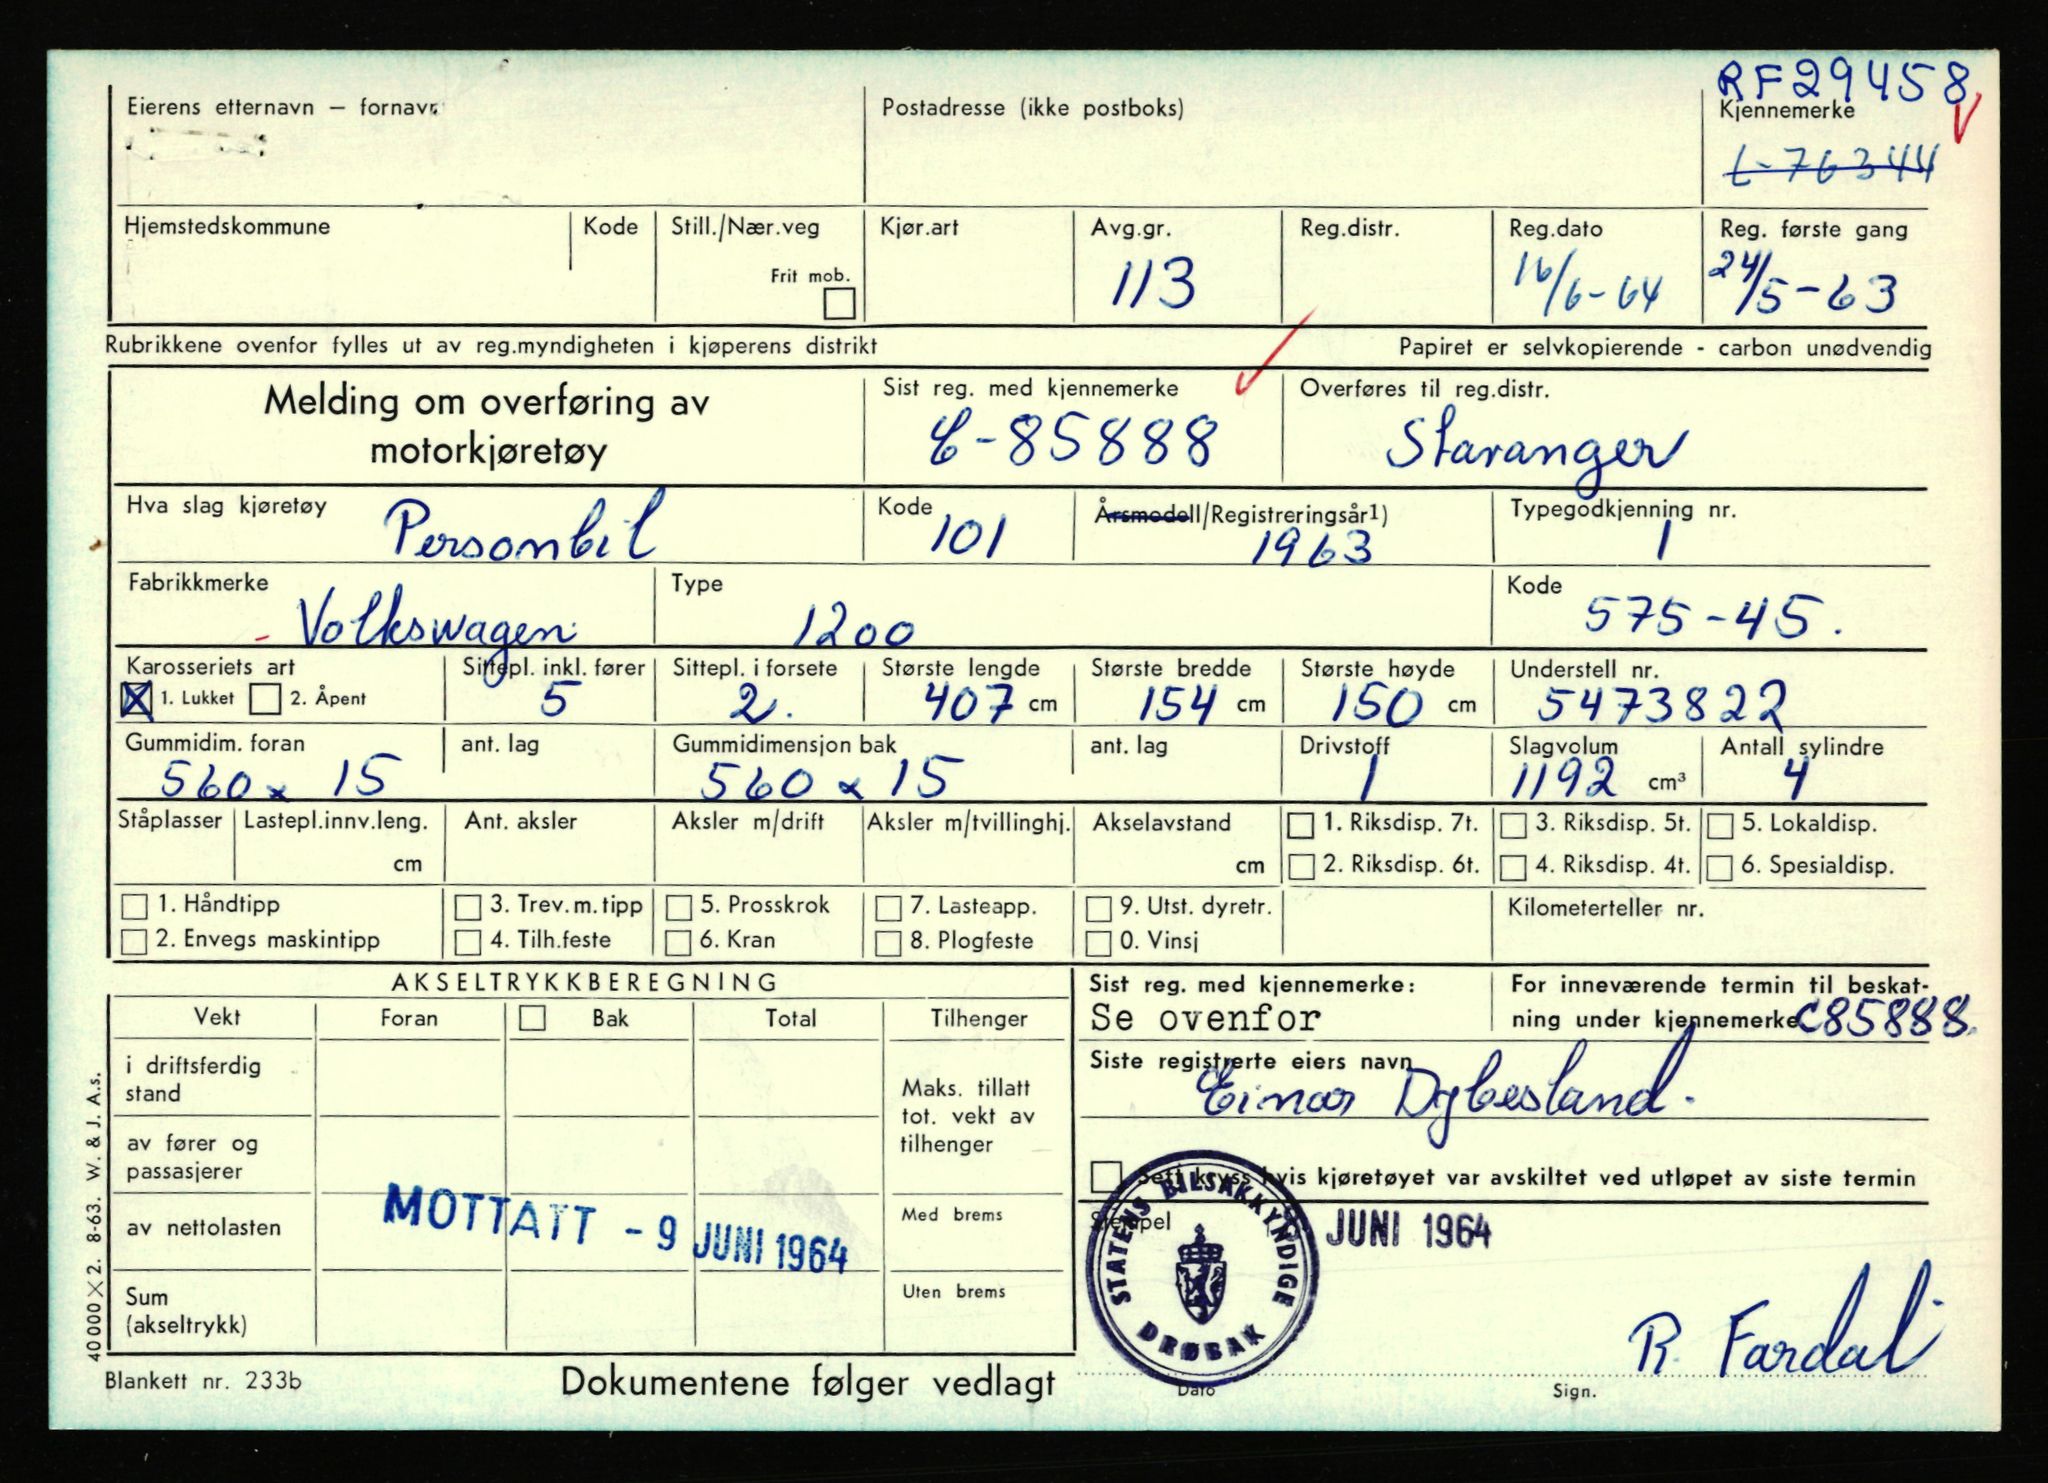 RF29458
Eierens etternavn – fornavn
Postadresse (ikke postboks)
Kjennemerke
L-76344
Hjemstedskommune
Kode
Still./Nær.veg
Kjør.art
Avg.gr.
Reg.distr.
Reg.dato
Reg. første gang
Frit mob.
113
16/6-64
24/5-63
Rubrikkene ovenfor fylles ut av reg.myndigheten i kjøperens distrikt
Papiret er selvkopierende - carbon unødvendig
Melding om overføring av
motorkjøretøy
Sist reg. med kjennemerke
C-85888
Overføres til reg.distr.
Stavanger
Hva slag kjøretøy
Personbil
Kode
101
Årsmodell/Registreringsår1)
1963
Typegodkjenning nr.
1
Fabrikkmerke
Volkswagen
Type
1200
Kode
575-45.
Karosseriets art
1. Lukket
2. Åpent
Sittepl. inkl. fører
5
Sittepl. i forsete
2.
Største lengde
407 cm
Største bredde
154 cm
Største høyde
150 cm
Understell nr.
5473822
Gummidim. foran
560 x 15
ant. lag
Gummidimensjon bak
560 x 15
ant. lag
Drivstoff
1
Slagvolum
1192 cm³
Antall sylindre
4
Ståplasser
Lastepl.innv.leng.
cm
Ant. aksler
Aksler m/drift
Aksler m/tvillinghj.
Akselavstand
cm
1. Riksdisp. 7t.
2. Riksdisp. 6t.
3. Riksdisp. 5t.
4. Riksdisp. 4t.
5. Lokaldisp.
6. Spesialdisp.
1. Håndtipp
2. Envegs maskintipp
3. Trev.m.tipp
4. Tilh.feste
5. Prosskrok
6. Kran
7. Lasteapp.
8. Plogfeste
9. Utst. dyretr.
0. Vinsj
Kilometerteller nr.
AKSELTRYKKBEREGNING
Vekt
Foran
Bak
Total
Tilhenger
i driftsferdig
stand
av fører og
passasjerer
av nettolasten
Sum
(akseltrykk)
Maks. tillatt
tot. vekt av
tilhenger
Med brems
Uten brems
MOTTATT - 9 JUNI 1964
Sist reg. med kjennemerke:
Se ovenfor
For inneværende termin til beskat-
ning under kjennemerke C85888.
Siste registrerte eiers navn
Einar Dybesland.
Sett kryss hvis kjøretøyet var avskiltet ved utløpet av siste termin
Stempel
STATENS BILSAKKYNDIGE
DRØBAK
JUNI 1964
R. Fardal
Dato
Sign.
40000 X 2. 8-63. W. & J. A.s.
Blankett nr. 233b
Dokumentene følger vedlagt